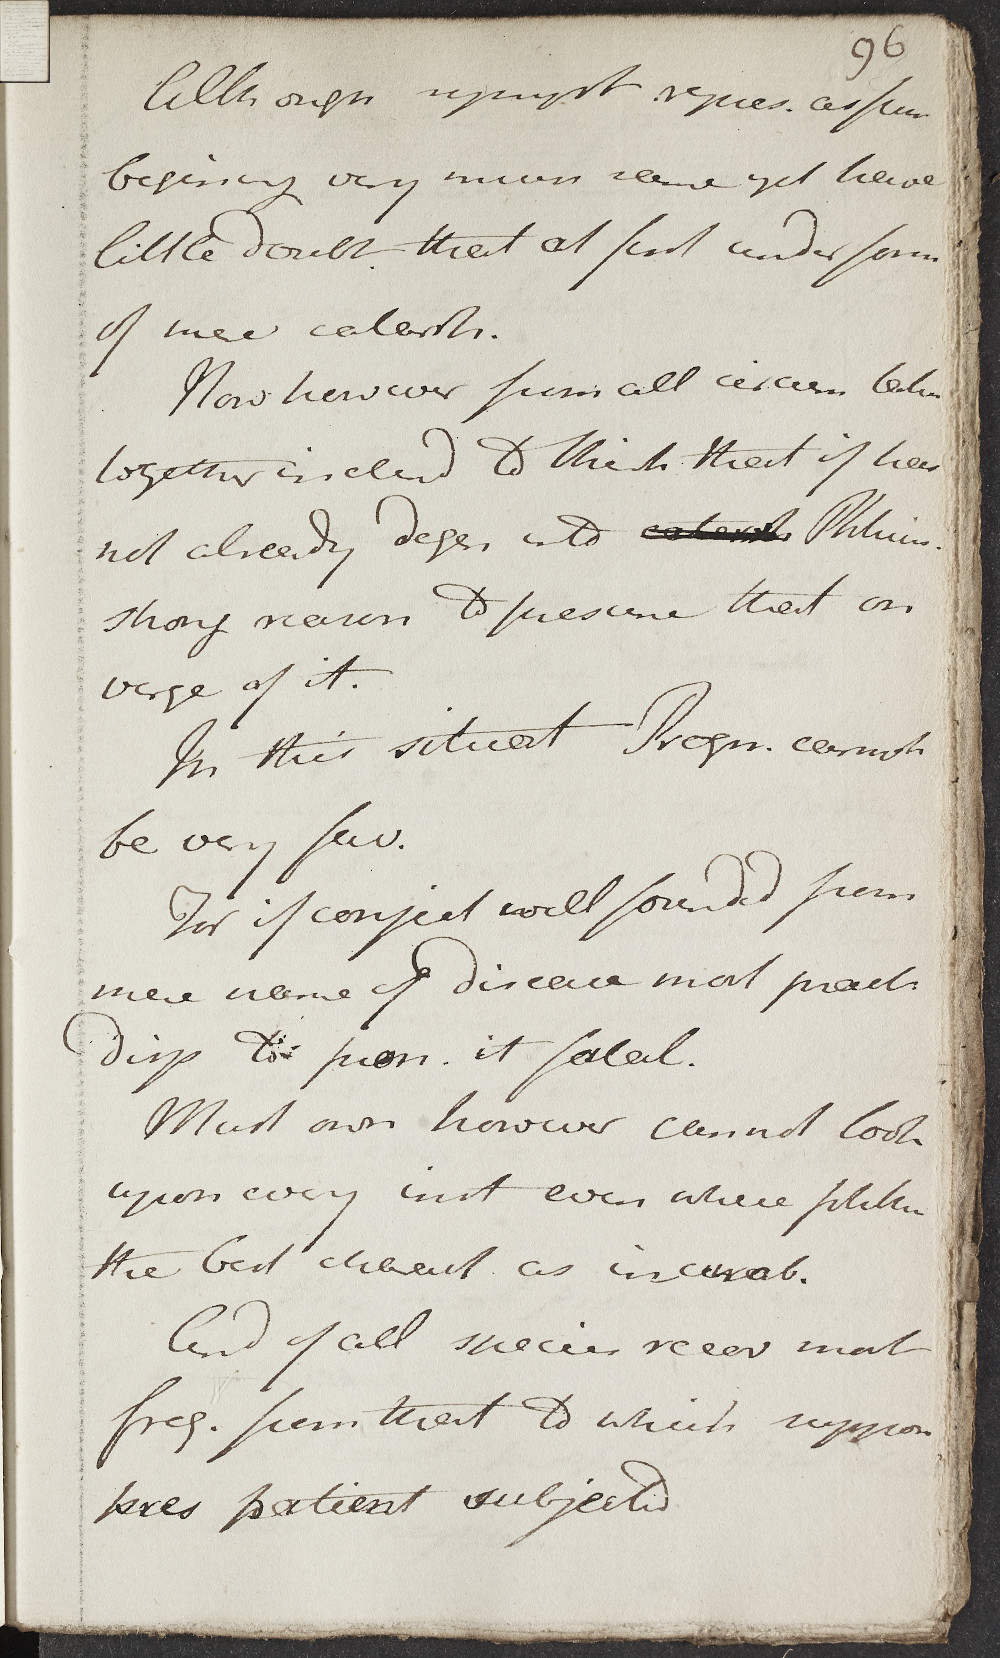 96
Although sympt repres. as from
beginning very much same yet have
little doubt that at first under form
of mere catarrh.
Now however from all circum taken
together inclend to think that if has
not already degen into catarrh Phthisis.
strong reason to presume that on
verge of it.
In this situat Progn. cannot
be very fav.
For if conject well founded from
mere name of disease most pract
disp to pron. it fatal.
Must own however cannot look
upon every inst even where phthis
the best charact as incurab.
And of all species recov most
freq. from that to which suppos
pres patient subjectd